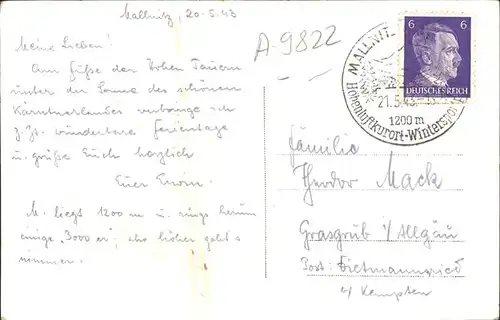 Mallnitz, 20-5.43
Meine Lieben!
Am Fuße der Hohen Tauern
unter der Sonne des schönen
Kärntnerlandes verbringe ich
z. Zt. wunderbare Ferientage
u. grüße Euch herzlich
Euer Erwin.
M. liegt 1200 m u. rings herum
einige „3000 er", aber höher geht's
nimmer.
A-9822
MALLNITZ
21.5.43
1200 m
Höhenluftkurort-Wintersport
6 6
DEUTSCHES REICH
Familie
Theodor Mack
Grasgrub i/Allgäu
Post: Dietmannsried
b/ Kempten